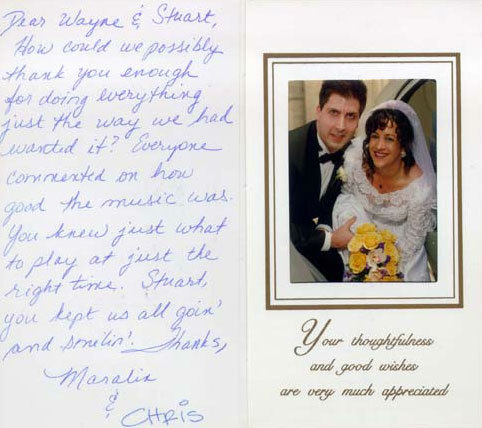 Dear Wayne & Stuart,
How could we possibly
thank you enough
for doing everything
just the way we had
wanted it? Everyone
commented on how
good the music was.
You knew just what
to play at just the
right time. Stuart,
you kept us all goin'
and smilin'. Thanks,
Maralin
&
CHRIS
Your thoughtfulness
and good wishes
are very much appreciated